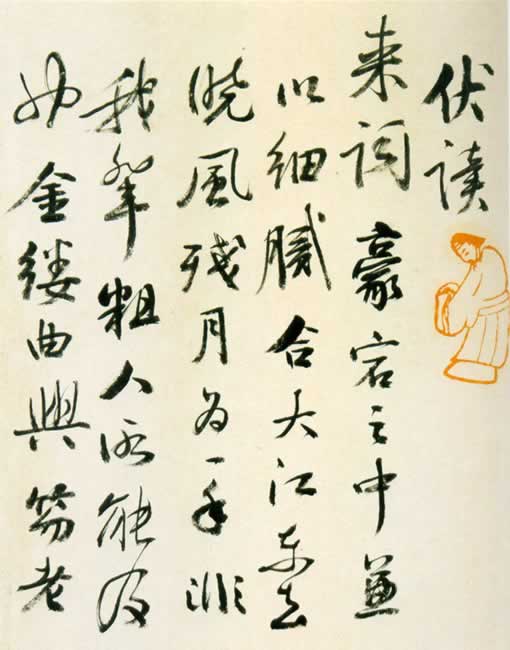 伏读
来词豪宕之中兼
以细腻合大江东去
晓风残月为一手非
我辈粗人所能及
金缕曲與老